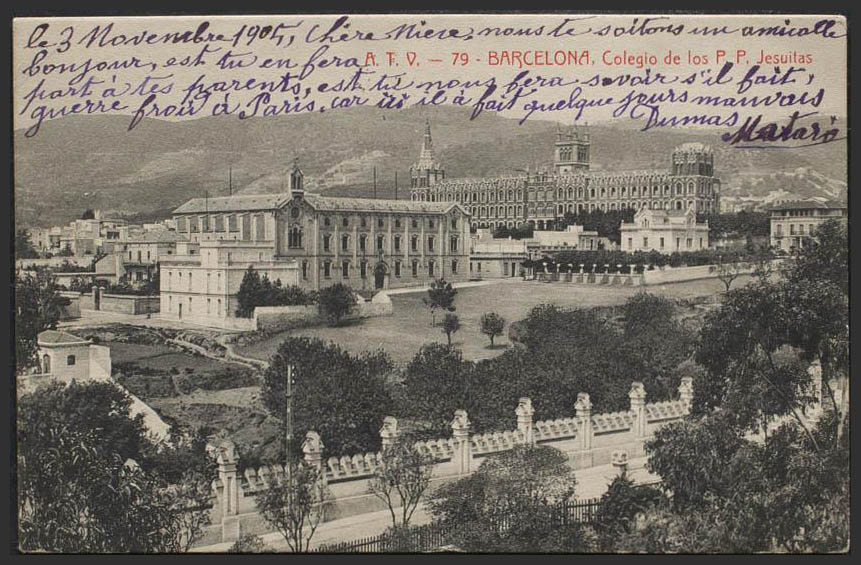 le 3 Novembre 1905, Chère Niece, nous te soitons un amicalle
bonjour, est tu en fera
A. T. V. — 79 - BARCELONA, Colegio de los P. P. Jesuitas
part à tes parents, est tu nous fera savoir s'il fait,
guerre froir à Paris, car ici il à fait quelque jours mauvais
Dumas Mataró